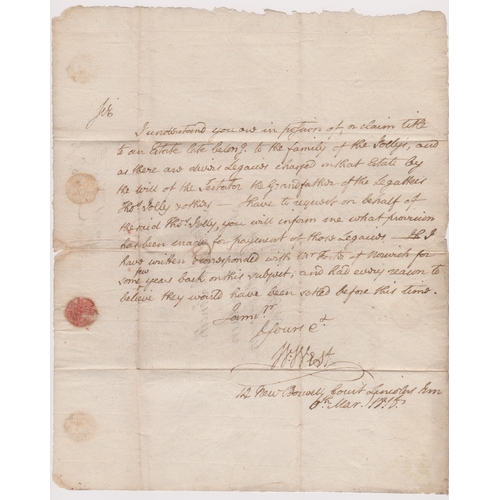 Sir
I understand you are in possion of, or claim title
to an Estate late belong.g to the family of the Jollys, and
as there are divers Legacies charged on that Estate by
the will of the Testator the Grandfather of the Legatees
Tho.s Jolly & others — I have to request on behalf of
the said Tho.s Jolly, you will inform me what provision
has been made for payment of those Legacies — I
have written & corresponded with at Norwich for
some few years back on this subject, and had every reason to
believe they would have been settled before this time.
I am Sr
Yours &c.
Wm West
12 New Boswell Court Lincolns Inn
6th Mar.